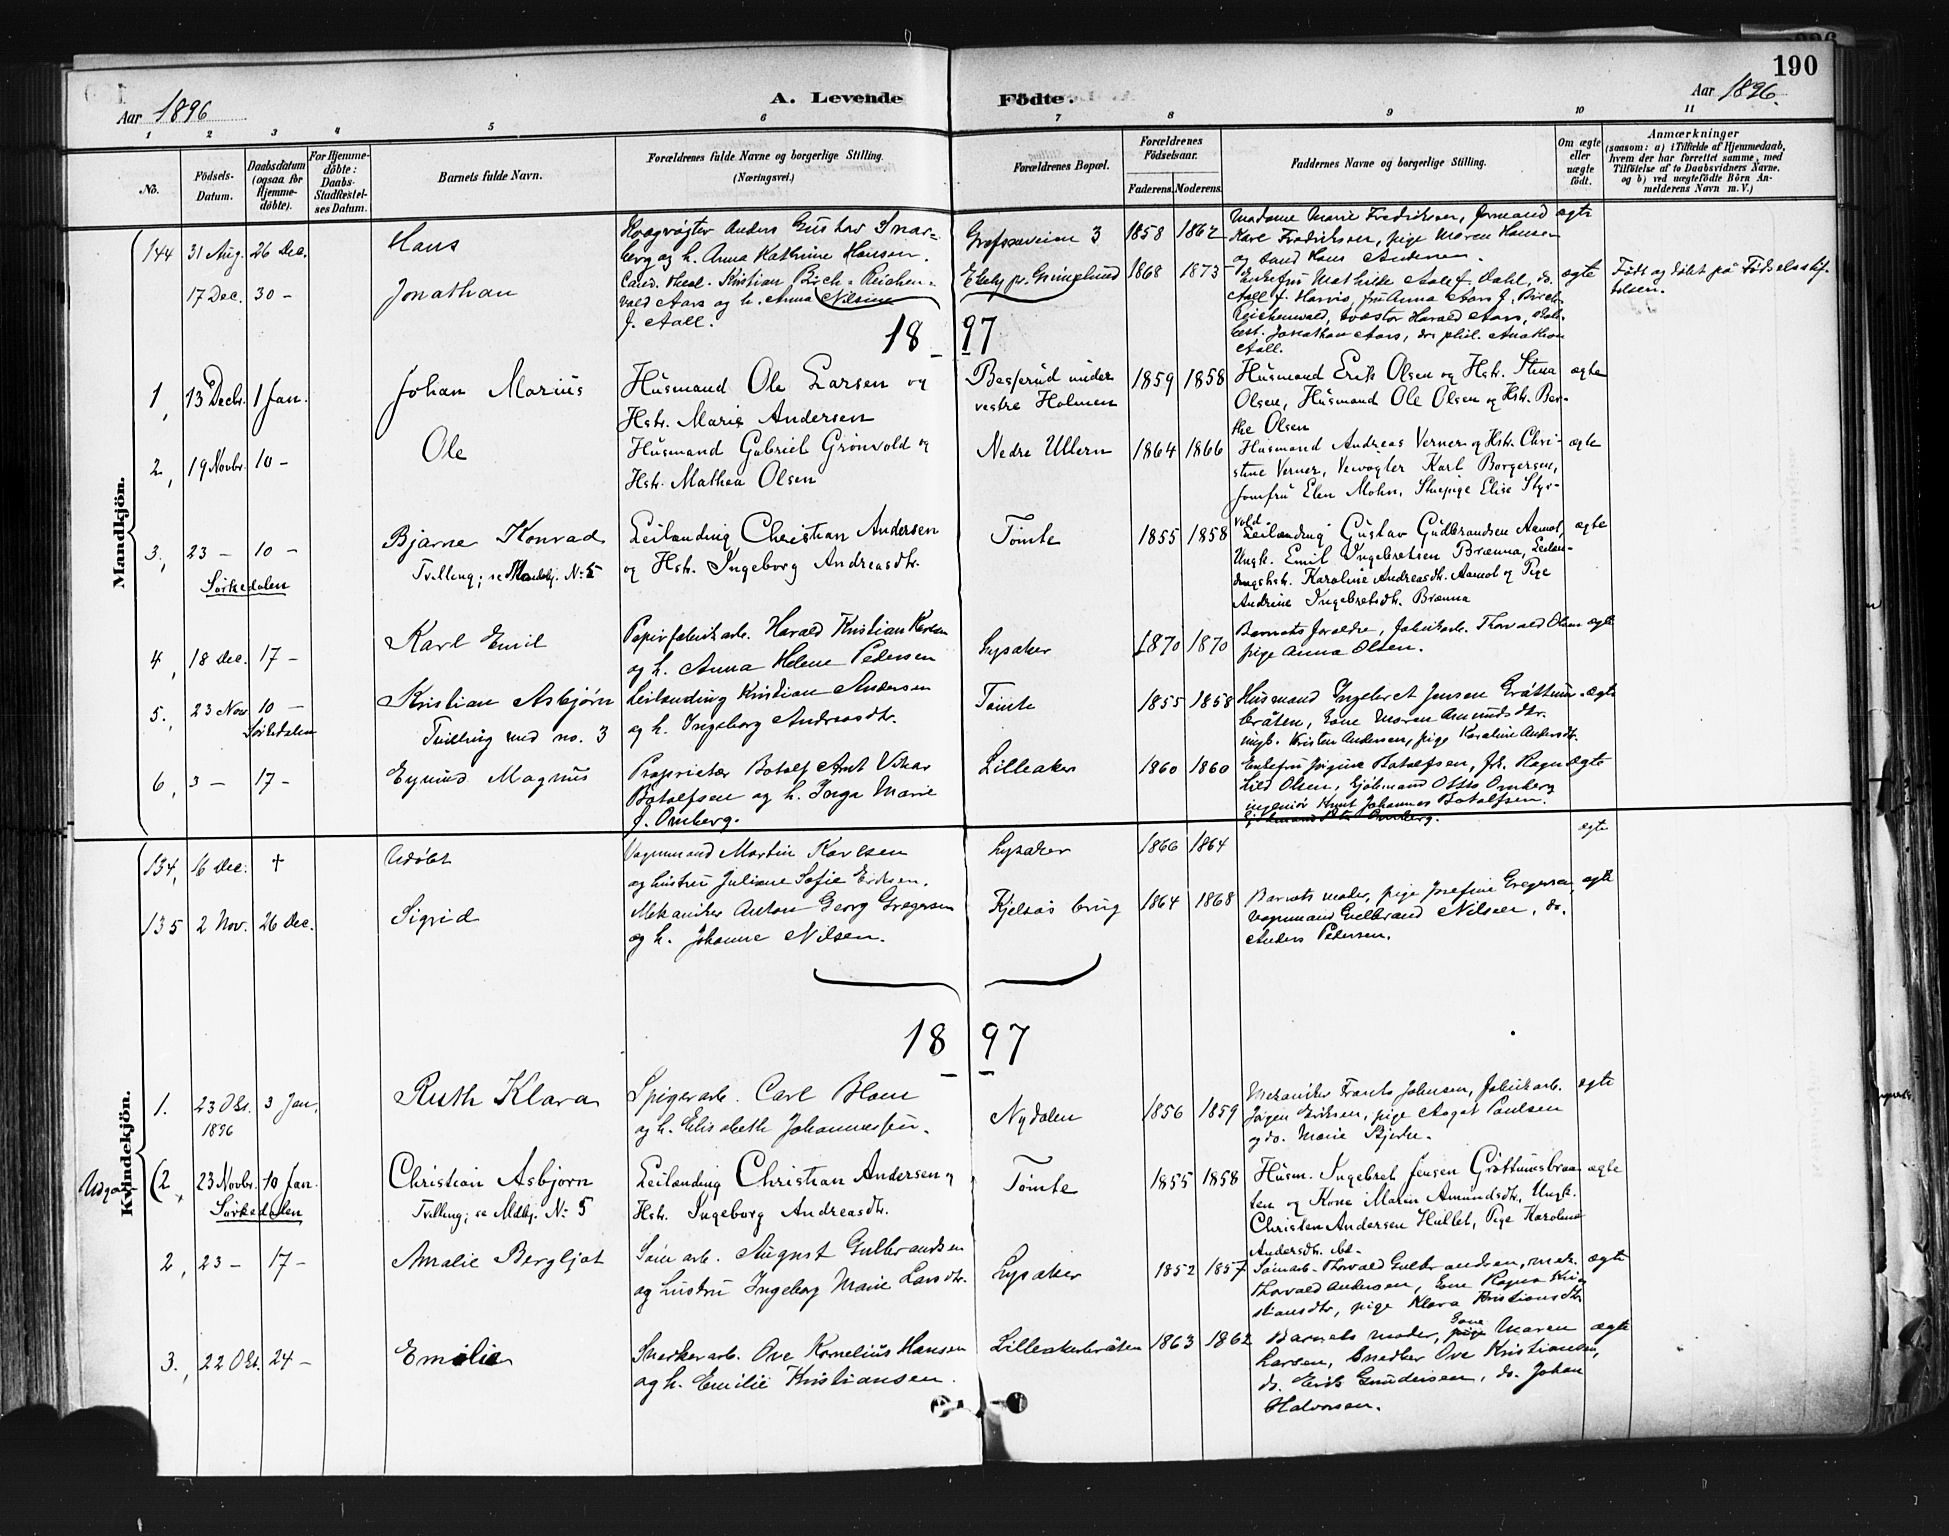 190
Aar 1896
A. Levende Födte.
Aar 1896.
1 2 3 4 5 6 7 8 9 10 11
No.
Födsels-Datum.
Daabsdatum (ogsaa for Hjemme-döbte).
For Hjemme-döbte: Daabs-Stadfæstel-ses Datum.
Barnets fulde Navn.
Forældrenes fulde Navne og borgerlige Stilling.
(Næringsvei.)
Forældrenes Bopæl.
Forældrenes Födselsaar.
Faderens. Moderens.
Faddernes Navne og borgerlige Stilling.
Om ægte eller uægte födt.
Anmærkninger
(saasom: a) i Tilfælde af Hjemmedaab,
hvem der har forrettet samme, med
Tilföielse af to Daabsvidners Navne,
og b) ved uægtefödte Börn An-
melderens Navn m. V.)
Mandkjön.
144 31 Aug. 26 Dec. Hans
Anders Gustav Snar-
berg og h. Anna Kathrine Hansen.
Grefsenveien 3 1858 1862
Madame Marie Fredriksen, formand
Karl Fredriksen, pige Maren Hansen
og Hans Andersen. ægte
17 Dec. 30 - Jonathan
Cand. theol. Kristian Birch-Reichen-
wald Aars og h. Anna Nilsine
f. Aall.
Ekely pr. Grimelund 1868 1873
Enkefru Mathilde Aall f. Dahl, do.
Aall f. Harris, fru Anna Aars f. Birch-
Reichenwald, Harald Aars,
Jonathan Aars, dr. phil. Anathon
Aall. ægte
Født og døbt på Fødselsstif-
telsen.
18 97
1, 13 Decbr. 1 Jan. Johan Marius
Husmand Ole Larsen og
Hstr. Marie Andersen
Besserud under
vestre Holmen 1859 1858
Husmand Erik Olsen og Hstr. Stina
Olsen, Husmand Ole Olsen og Hstr. Ber-
the Olsen ægte
2, 19 Novbr. 10 - Ole
Husmand Gabriel Grönvold og
Hstr. Mathea Olsen
Nedre Ullern 1864 1866
Husmand Andreas Verner og Hstr. Chri-
stine Verner, Veivogter Karl Borgersen,
Jomfru Elen Mohn, Stuepige Elise Styr-
vold. ægte
3, 23 - 10 - Bjarne Konrad
Sørkedalen
Tvilling; se Mandkj. No 5
Leilænding Christian Andersen
og Hstr. Ingeborg Andreasdtr.
Tomte 1855 1858
Leilænding Gustav Gudbrandsen Aamot,
Ungk. Emil Ingebretsen Brænna, Leilæn-
dingshstr. Karoline Andreasdtr. Aamot og Pige
Andrine Ingebretsdtr. Brænna ægte
4, 18 Dec. 17 - Karl Emil
Papirfabrikarb. Harald Kristian Karlsen
og h. Anna Helene Pedersen
Lysaker 1870 1870
Barnets forældre, fabrikarb. Thorvald Olsen
pige Anna Olsen. ægte
5., 23 Nov. 10 - Kristian Asbjørn
Sørkedalen
Tvilling med no. 3
Leilænding Kristian Andersen
og h. Ingeborg Andreasdtr.
Tomte 1855 1858
Husmand Ingebret Jensen Gråttum-
bråten, kone Maren Amundsdtr.
ungk. Kristen Andersen, pige Karoline Andersdtr. ægte
6, 3 - 17 - Eyvind Magnus
Proprietær Botolf Arnt Vikar
Botolfsen og h. Inga Marie
f. Ornberg.
Lilleaker 1860 1860
Enkefru Jørgine Botolfsen, frk. Ragn-
hild Olsen, Otto Ornberg
ingeniør Knut Johannes Botolfsen. ægte
Kvindekjön.
134, 16 Dec. † Udøbt
Vognmand Martin Karlsen
og hustru Juliane Sofie Eriksen.
Lysaker 1866 1864 ægte
135 2 Nov. 26 Dec. Sigrid
Mekaniker Anton Georg Gregersen
og h. Johanne Nilsen.
Kjelsås brug 1864 1868
Barnets moder, pige Josefine Gregersen,
vognmand Gulbrand Nilsen, do.
Anders Pedersen. ægte
18 97
1. 23 Okt. 3 Jan. Ruth Klara
1896
Spigerarb. Carl Blom
og h. Elisabeth Johannessen.
Nydalen 1856 1859
Mekaniker Frants Johnsen, fabrikarb.
Jørgen Eriksen, pige Aagot Paulsen
og do. Marie Stjerne. ægte
Udgaar
(2, 23 Novbr. 10 Jan. Christian Asbjørn
Sørkedalen
Tvilling; se Mdkj. No 5
Leilænding Christian Andersen og
Hstr. Ingeborg Andreasdtr.
Tomte 1855 1858
Husm. Ingebret Jensen Gråttumsbraa-
ten og Kone Maren Amundsdtr, Ungk.
Christen Andersen Hullet, Pige Karoline
Andersdtr. ibd. ægte
2, 23 - 17 - Amalie Bergljot
Sømarb. August Gulbrandsen
og hustru Ingeborg Marie Larsdtr.
Lysaker 1852 1857
Sømarb. Thorvald Gulbrandsen, mek.
Thorvald Andersen, kone Ragna Kri-
stiansdtr, pige Klara Kristiansdtr. ægte
3., 22 Okt. 24 - Emilie
Snekkerarb. Ove Kornelius Hansen
og h. Emilie Kristiansen.
Lilleakerbråten 1863 1862
Barnets moder, kone Maren
Larsen, snedker Ove Kristiansen,
do. Erik Gundersen, do. Johan
Halvorsen. ægte